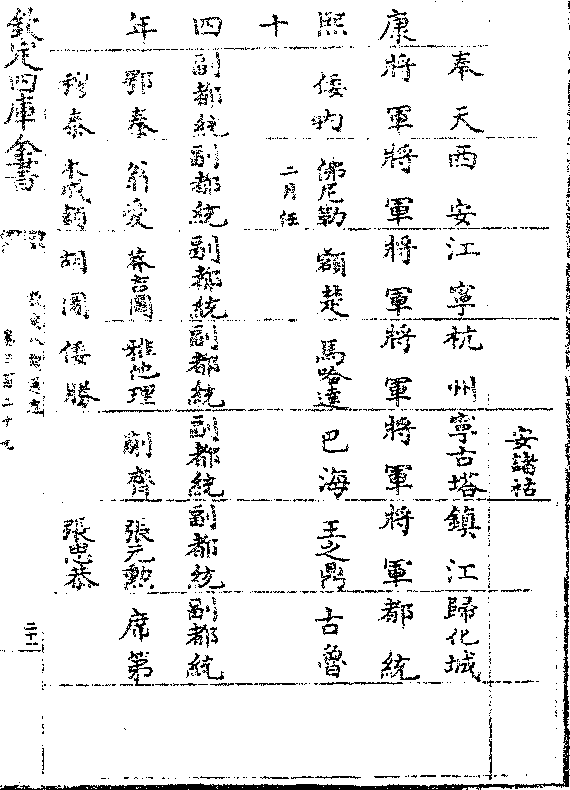 安諸祜
奉天 西安 江寧 杭州 寧古塔 鎮江 歸化城
康 將軍 將軍 將軍 將軍 將軍 將軍 都統
熙 倭 佛尼勒 額楚 馬哈達 巴海 王之鼎 古魯
十 二月任
四 副都統 副都統 副都統 副都統 副都統 副都統 副都統
年 鄂泰 翁愛 莽吉圖 雅他理 齊 張元勲 席第
穆泰 木成額 胡圖 倭勝 張思恭
欽定四庫全書 欽定八旗通志 卷三百二十九 二十一